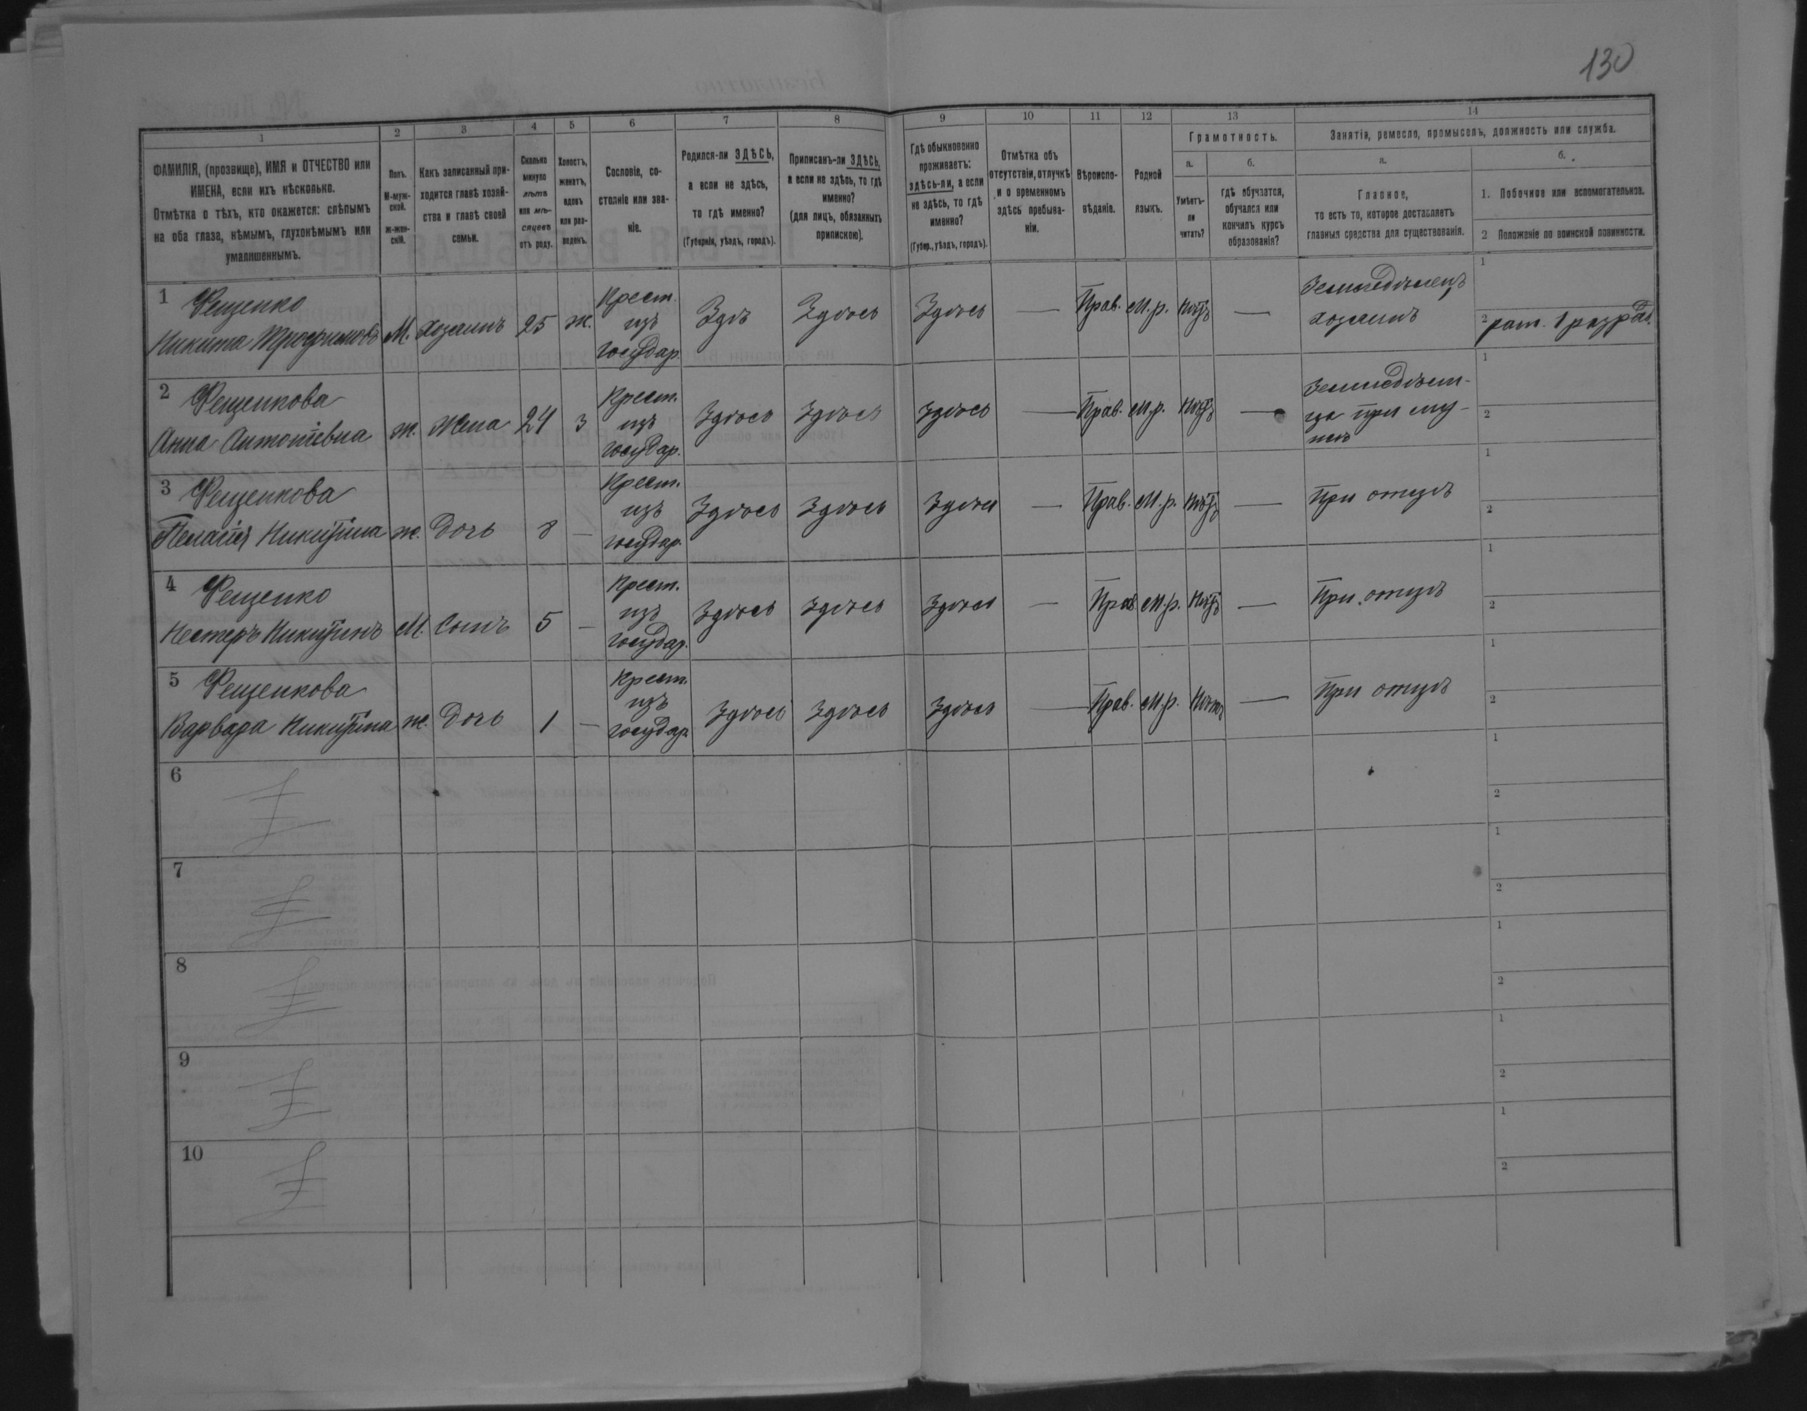 130
1
ФАМИЛІЯ, (прозвище), ИМЯ и ОТЧЕСТВО или
ИМЕНА, если ихъ нѣсколько.
Отмѣтка о тѣхъ, кто окажется: слѣпымъ
на оба глаза, нѣмымъ, глухонѣмымъ или
умалишеннымъ.
2
Полъ.
М-муж-
ской.
Ж-жен-
скій.
3
Какъ записанный при-
ходится главѣ хозяй-
ства и главѣ своей
семьи.
4
Сколько
минуло
лѣтъ
или мѣ-
сяцевъ
отъ роду.
5
Холостъ,
женатъ,
вдовъ
или раз-
веденъ.
6
Сословіе, со-
стояніе или зва-
ніе.
7
Родился-ли ЗДѢСЬ,
а если не здѣсь,
то гдѣ именно?
(Губернія, уѣздъ, городъ).
8
Приписанъ-ли ЗДѢСЬ,
а если не здѣсь, то гдѣ
именно?
(для лицъ, обязанныхъ
припискою).
9
Гдѣ обыкновенно
проживаетъ:
здѣсь-ли, а если
не здѣсь, то гдѣ
именно?
(Губер., уѣздъ, городъ).
10
Отмѣтка объ
отсутствіи, отлучкѣ
и о временномъ
здѣсь пребыва-
ніи.
11
Вѣроиспо-
вѣданіе.
12
Родной
языкъ.
13
Грамотность.
а.
Умѣетъ-
ли
читать?
б.
гдѣ обучается,
обучался или
кончилъ курсъ
образованія?
14
Занятіе, ремесло, промыселъ, должность или служба.
а.
Главное,
то есть то, которое доставляетъ
главныя средства для существованія.
б.
1. Побочное или вспомогательное.
2 Положеніе по воинской повинности.
1 Фещенко
Никита Трофимовъ М. хозяинъ 25 ж. Крест. изъ государ. Здѣ Здѣсь Здѣсь — Прав. М.р. нѣтъ — Земледѣлецъ хозяинъ
1
2 рат. 1 разряд.
2 Фещенкова
Анна Антоніевна ж. жена 24 З Крест. изъ государ. Здѣсь Здѣсь Здѣсь — Прав. М.р. нѣтъ —
1
2
3 Фещенкова
Пелагія Никитина ж. Дочь 8 — Крест. изъ государ. Здѣсь Здѣсь Здѣсь — Прав. М.р. нѣтъ — При отцѣ
1
2
4 Фещенко
Нестеръ Никитинъ М. Сынъ 5 — Крест. изъ государ. Здѣсь Здѣсь Здѣсь — Прав. М.р. нѣтъ — При отцѣ
1
2
5 Фещенкова
Варвара Никитина ж. Дочь 1 — Крест. изъ государ. Здѣсь Здѣсь Здѣсь — Прав. М.р. нѣтъ — При отцѣ
1
2
6
1
2
7
1
2
8
1
2
9
1
2
10
1
2